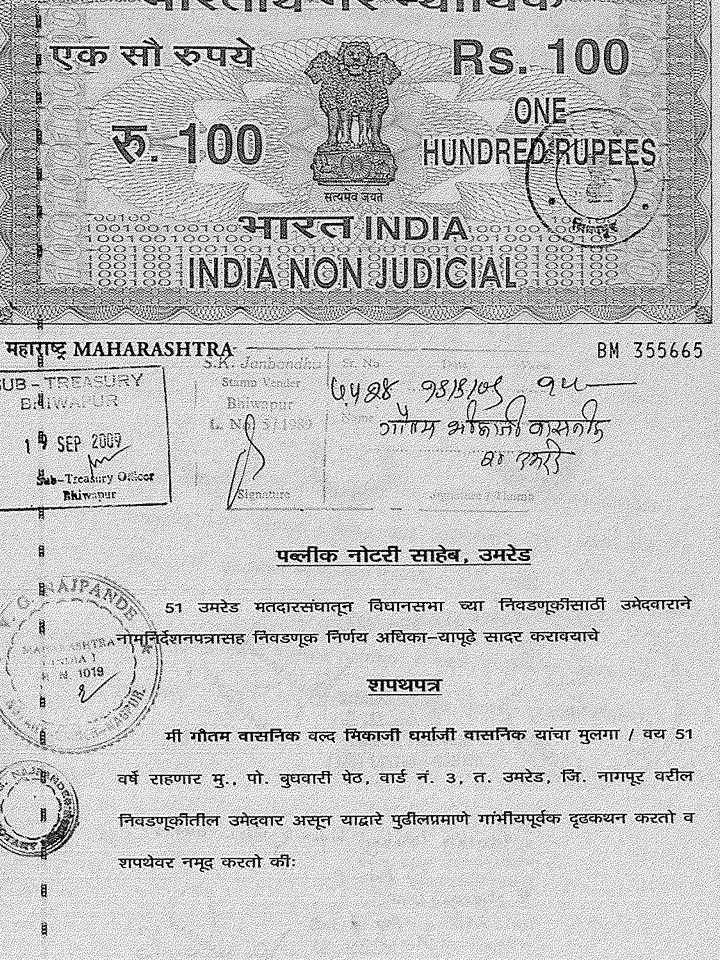 भारतीय गैर न्यायिक
एक सौ रुपये
Rs. 100
रु. 100
ONE
HUNDRED RUPEES
सत्यमेव जयते
भारत INDIA
INDIA NON JUDICIAL
महाराष्ट्र MAHARASHTRA
BM 355665
SUB-TREASURY
BHIWAPUR
SEP 2009
Sub-Treasury Officer
Bhiwapur
S.K. Janbandhu
Stamp Vender
Bhiwapur
L. No. 5/1989
Signature
Sr. No
Date
Name
Signature / Thumb
गौतम भीकाजी वासनीक
रा उमरेड
पब्लीक नोटरी साहेब, उमरेड
51 उमरेड मतदारसंघातून विघानसभा च्या निवडणूकीसाठी उमेदवाराने
नामनिर्देशनपत्रासह निवडणूक निर्णय अधिका-यापूढे सादर करावयाचे
शपथपत्र
मी गौतम वासनिक वल्द भिकाजी धर्माजी वासनिक यांचा मुलगा / वय 51
वर्षे राहणार मु., पो. बुधवारी पेठ, वार्ड नं. 3, त. उमरेड, जि. नागपूर वरील
निवडणूकीतील उमेदवार असून याद्वारे पुढीलप्रमाणे गांभीयपूर्वक दृढकथन करतो व
शपथेवर नमूद करतो कीः
NAJPANDE
MAHARASHTRA
(INDIA)
R. N. 1019
NAGPUR.